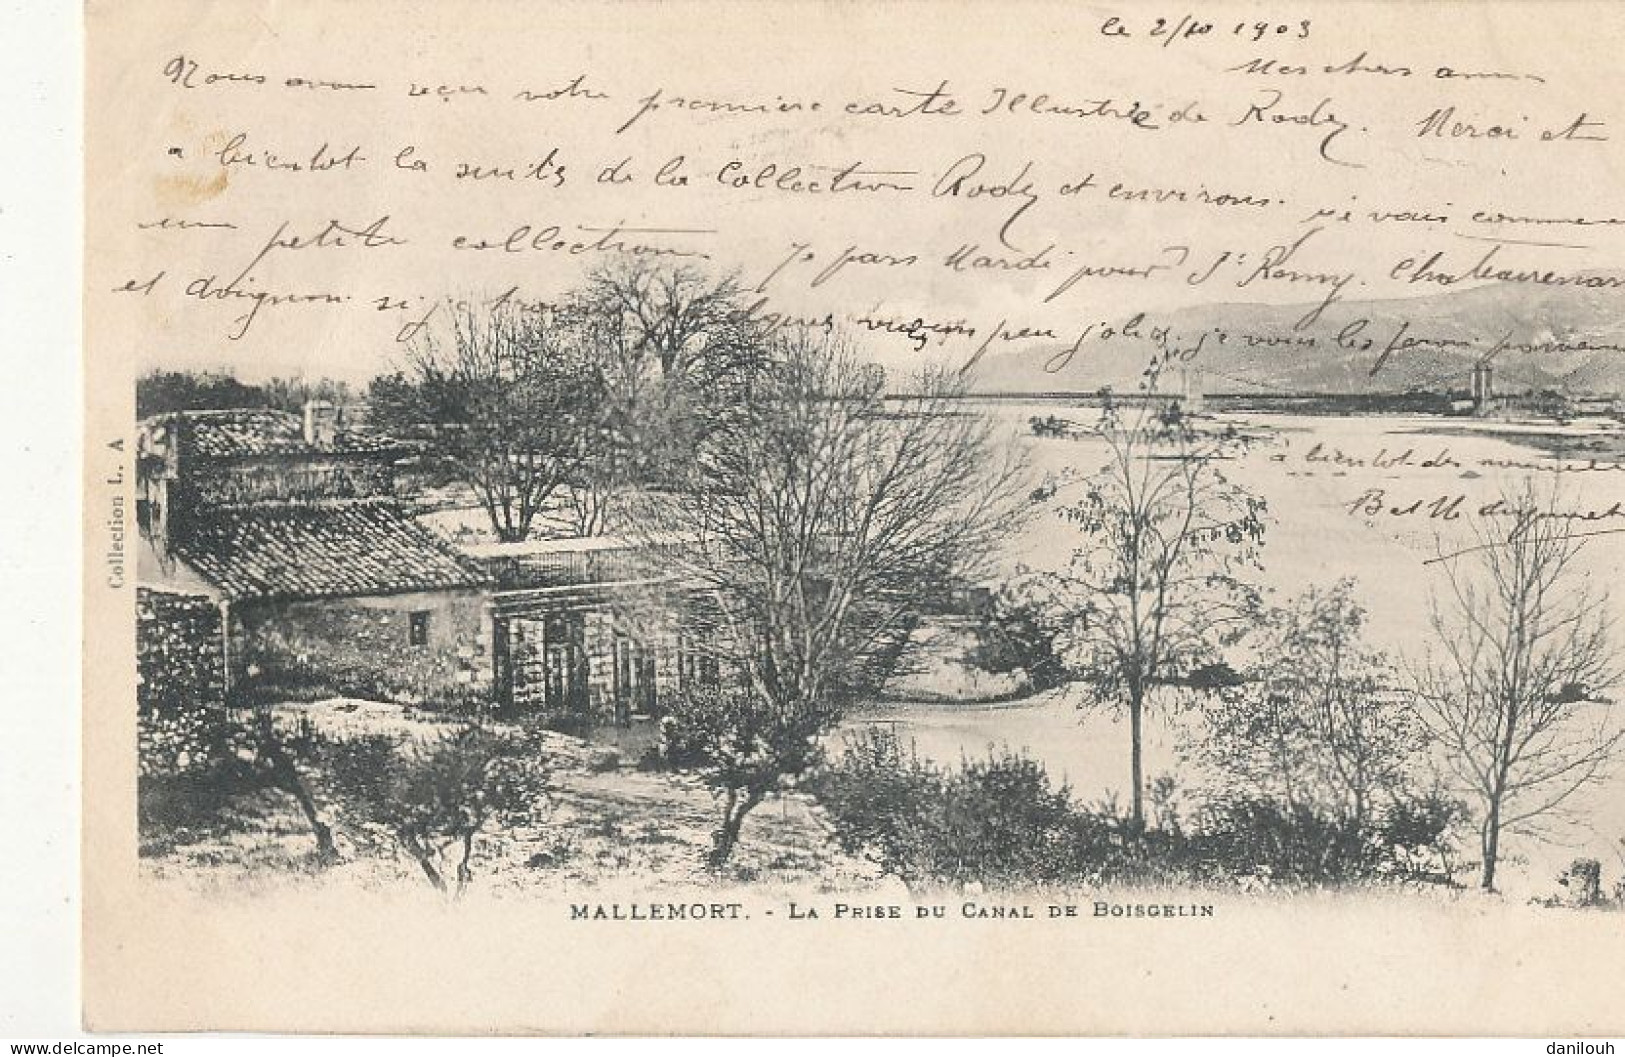 le 2/10 1903
Mes chers amis
Nous avons reçu votre première carte Illustrée de Rodez. Merci et
a bientot la suite de la Collection Rodez et environs. je vais commence
une petite collection. Je pars Mardi pour St Remy. Chateaurenar
et Avignon. si je quelques vues un peu jolies. je vous les ferai parveni
a bientot des nouvelle
B et M
Collection L. A
MALLEMORT. - LA PRISE DU CANAL DE BOISGELIN
https://www.delcampe.net
danilouh